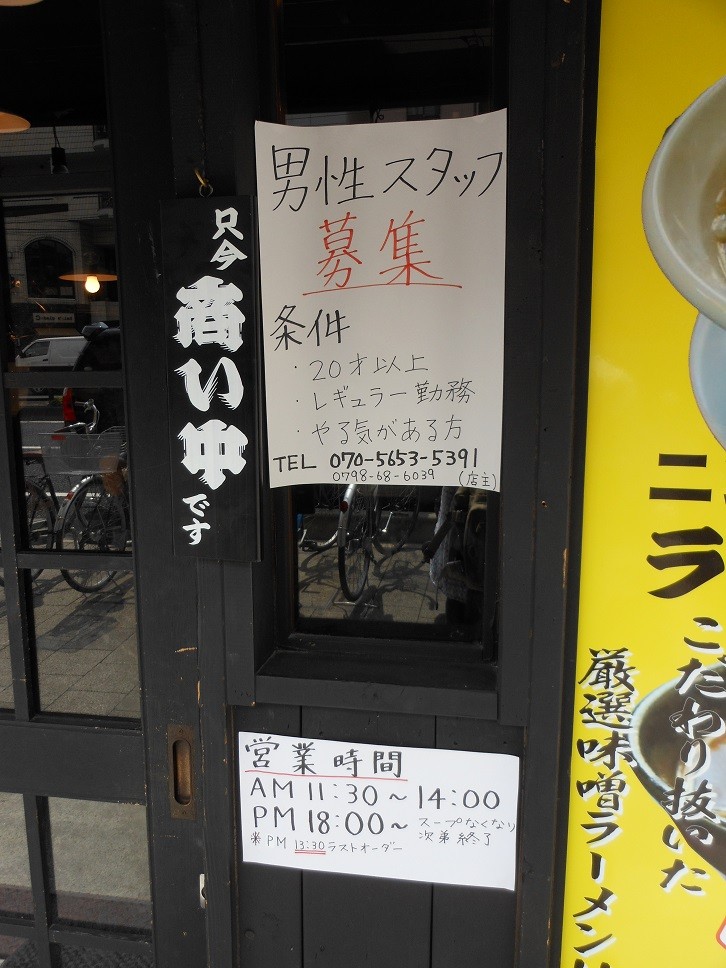 只今
商い中
です
男性スタッフ
募集
条件
・20才以上
・レギュラー勤務
・やる気がある方
TEL 070-5653-5391
0798-68-6039 (店主)
営業時間
AM 11:30~14:00
PM 18:00~ スープなくなり
次第終了
※PM 13:30 ラストオーダー
ニラ
こだわり抜いた
厳選味噌ラーメン